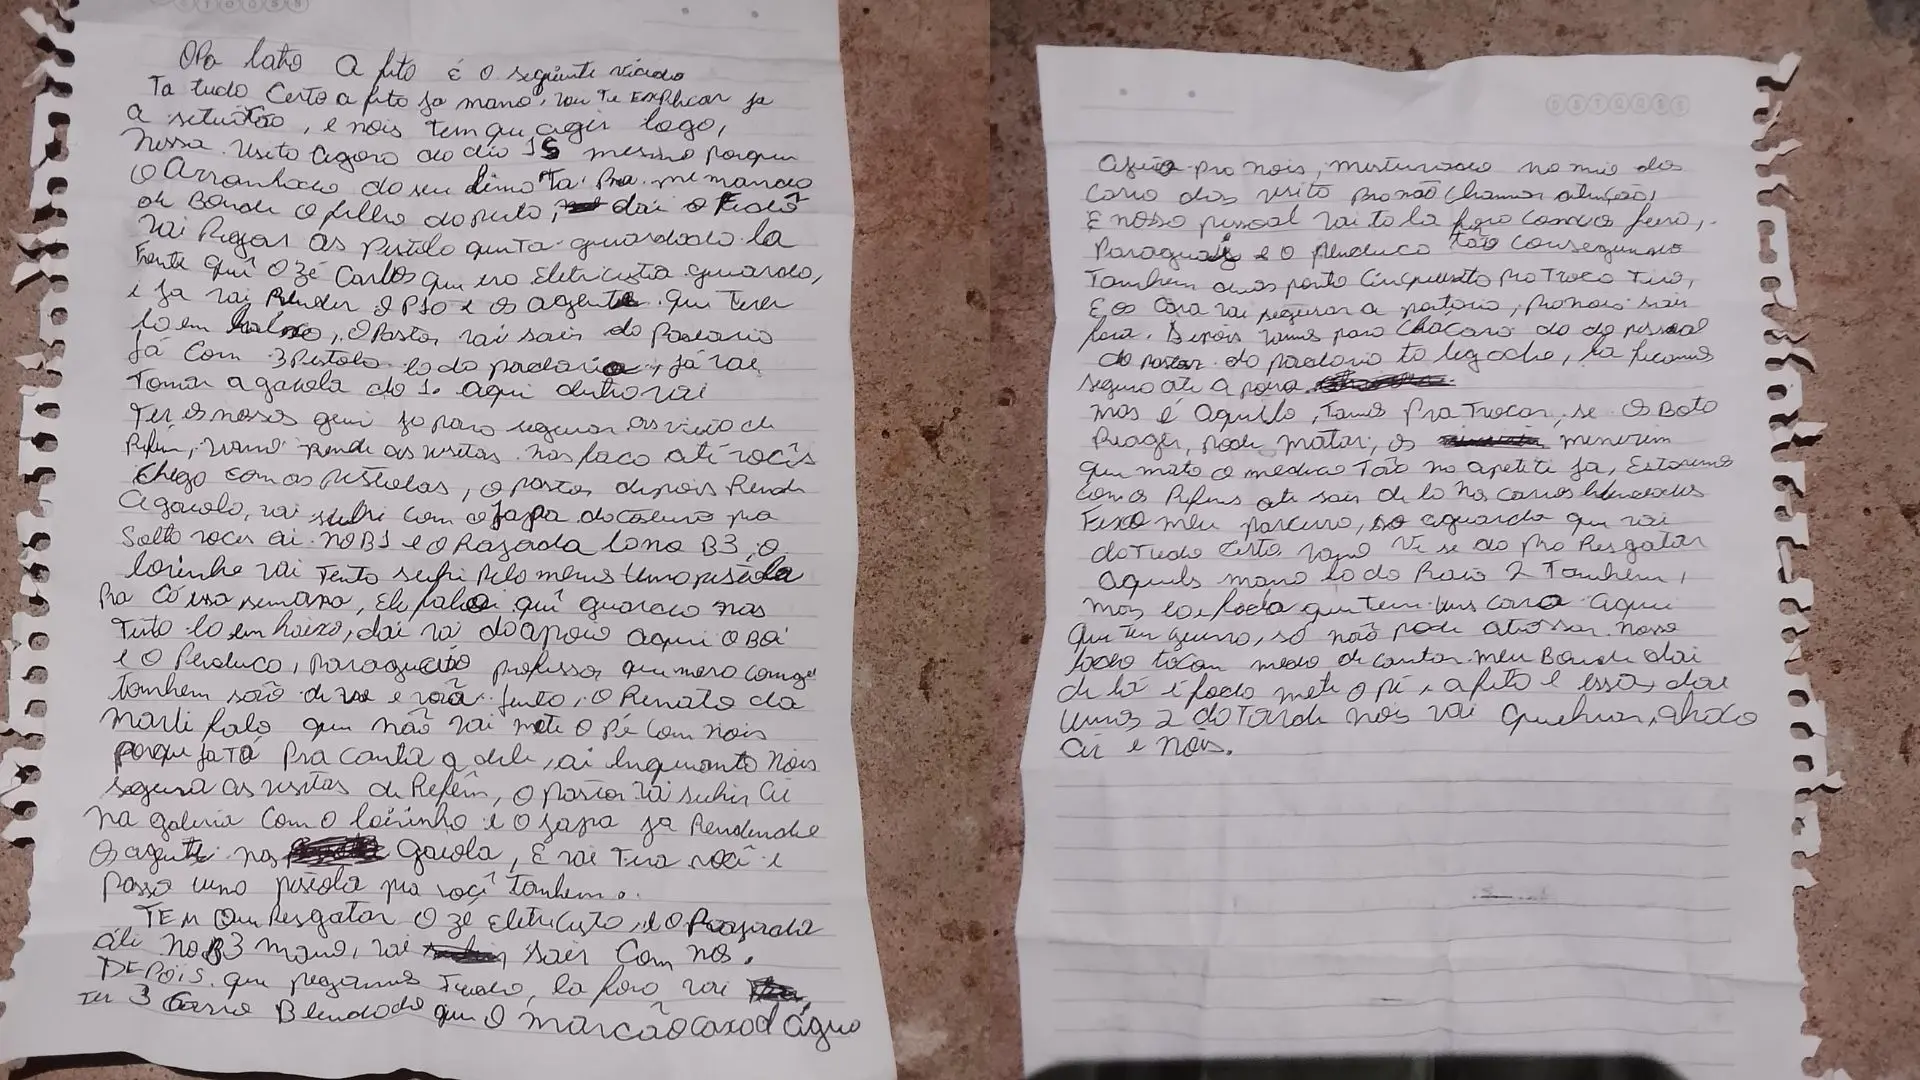 OPa lako A fito é o seguinte viado
Ta tudo Certo a fito ja mano, vou Te Explicar ja
a setuitão, e nois tem qu agir logo,
Nessa visita agora do dia 15 mesmo porque
o Arranhado do seu Ta Pra me manda
de Bonde o filho da puta, dai o
vai Pegar as Pistola qui ta guardada la
Frente qui o zé Carlos que era Eletricista guardo,
e ja vai Render o P10 e os agente que Tever
la em baixo, o Pastor vai sair da Padaria
Já Com 3 Pistola la da padaria, já vai
Tomar a gaiola do 1. aqui dentro vai
Ter os nosos ja para segurar as de
Refém, vamo rende as visitas nas faca até vocês
chega com as pistolas, o pastor depois Rende
a gaiola, vai subi com o Japa da pra
Solta voces ai no B1 e o Rajada la no B3, o
loirinho vai Tenta subi pelo menos uma pistola
Pra Cá essa semana, Ele falou qui guardo nas
la em baixo, dai vai da apoio aqui o Boi
e o Penduca, Paraguaio professor que mora comigo
tambem são di e vão junto, o Renato da
Marli falo que não vai mete o Pé com nois
porque ja Tá Pra canta a dele, ai Enquanto Nois
segura as visitas de Refém, o pastor vai subir ai
na galeria Com o loirinho e o Japa ja Rendendo
Os agente nas Gaiola, E vai Tira você e
passa uma pistola pra você Tambem.
TEM Qui Resgatar O zé Eletricista, e o Rajada
ali no B3 mano, vai sair Com nos.
DEPois que pegarmos Tudo, la fora vai
Ter 3 Carro Blendado que o marcão caxa d água
pra nois, misturado no mio dos
carro das visita pra não Chamar atenção,
E noso pessoal vai ta la fora,
Paraguaio e o Penduca tão conseguindo
Tambem duas ponto Cinquenta pra Troca Tiro,
E os Cara vai segurar a portaria, pra nois sair
fora. Depois vamos para Chácara do do pessoal
do Pastor da padaria, la ficamos
seguro até a
mas é aquilo, Tamos Pra Trocar, se Os Bota
Reager, pode matar, os
que mato o médico Tão no apetite ja, Estaremos
com os Refens até sair de la nos carros blendados
Fexo meu parceiro, so aguarda que vai
da Tudo Certo, vamo Ve se da pra Resgatar
aqueles mano la do Raio 2 Tambem,
mas la é foda que tem uns cara aqui
que Ter guerra, só não pode atrasar nosso
lado medo de cantar meu Bonde dai
de lá é foda mete o pé, a fito é essa, dai
umas 2 da Tarde nos vai
ai e Nois.